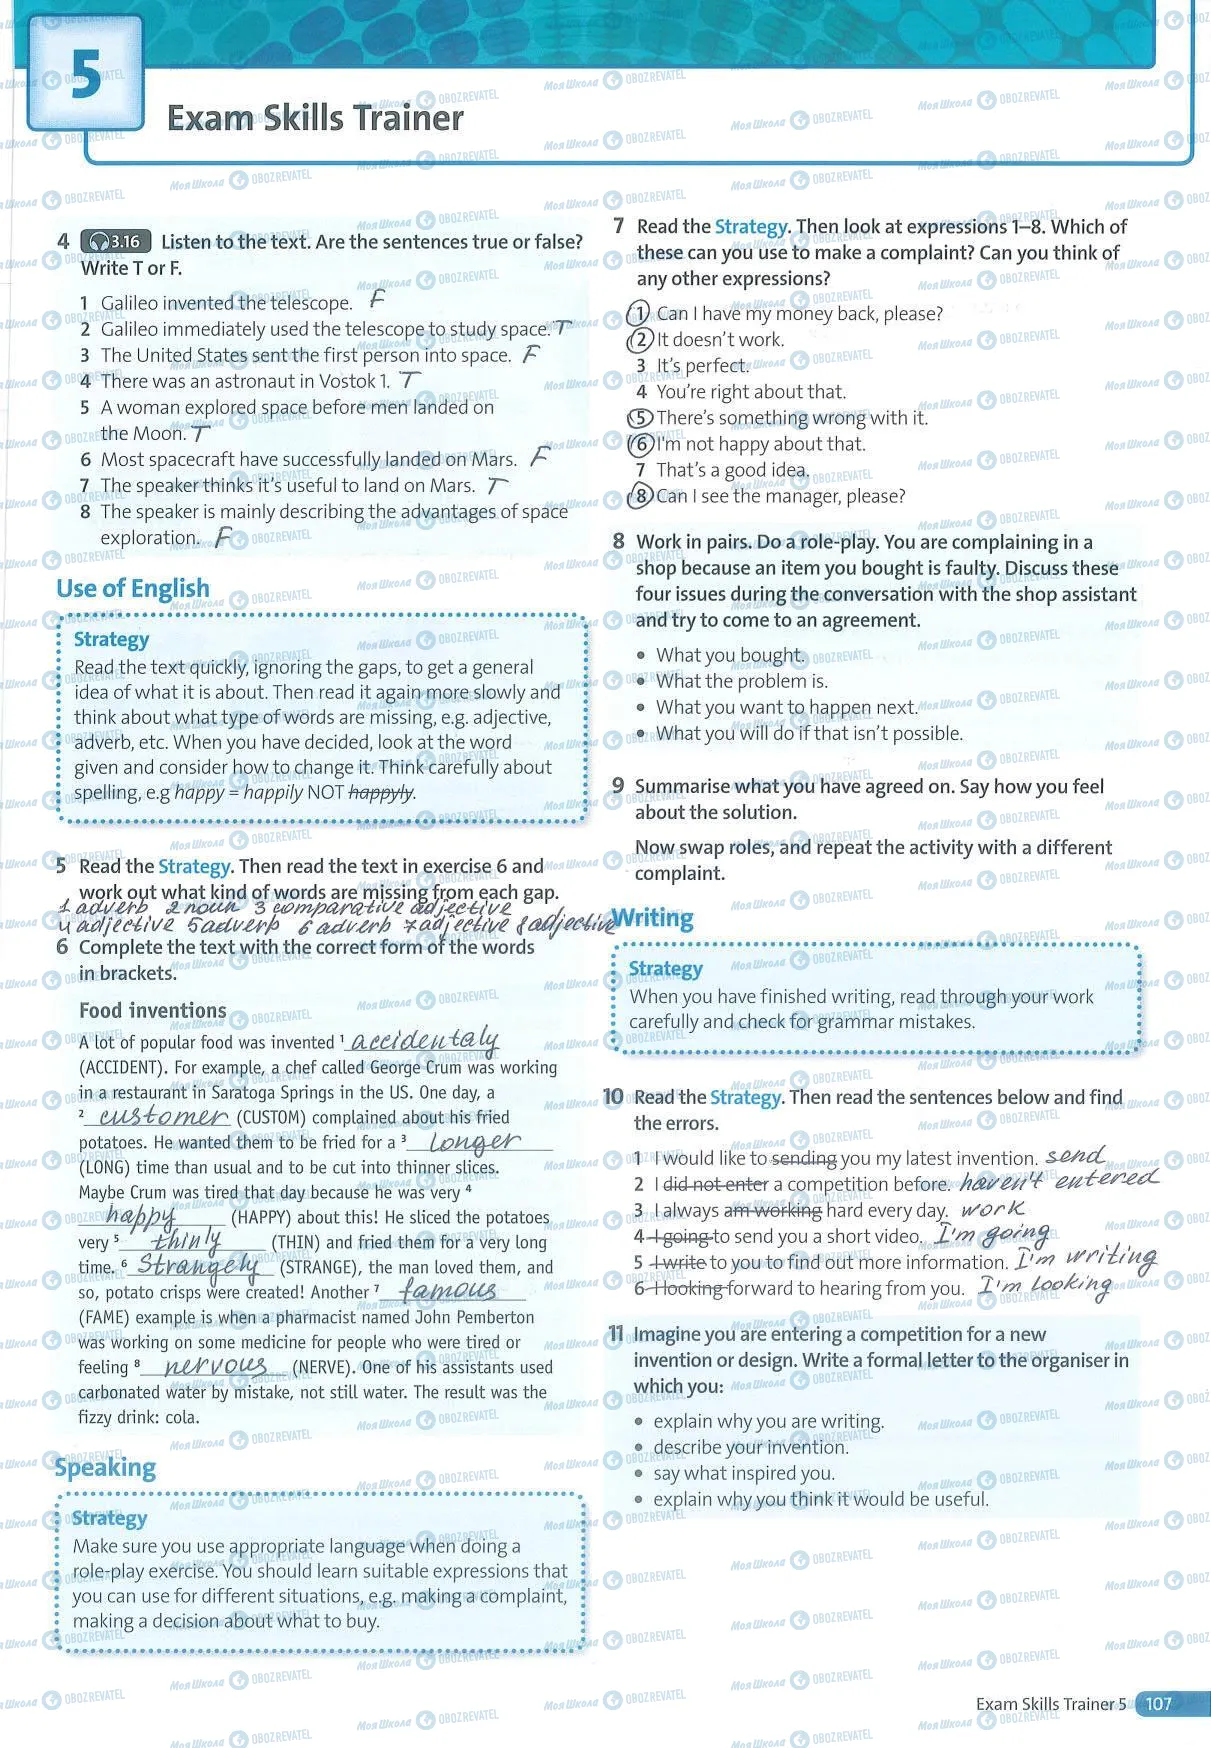 5
Exam Skills Trainer
4 3.16 Listen to the text. Are the sentences true or false?
Write T or F.
1 Galileo invented the telescope. F
2 Galileo immediately used the telescope to study space. T
3 The United States sent the first person into space. F
4 There was an astronaut in Vostok 1. T
5 A woman explored space before men landed on
the Moon. T
6 Most spacecraft have successfully landed on Mars. F
7 The speaker thinks it's useful to land on Mars. T
8 The speaker is mainly describing the advantages of space
exploration. F
Use of English
Strategy
Read the text quickly, ignoring the gaps, to get a general
idea of what it is about. Then read it again more slowly and
think about what type of words are missing, e.g. adjective,
adverb, etc. When you have decided, look at the word
given and consider how to change it. Think carefully about
spelling, e.g happy = happily NOT happyly.
5 Read the Strategy. Then read the text in exercise 6 and
work out what kind of words are missing from each gap.
1 adverb 2 noun 3 comparative adjective
4 adjective 5 adverb 6 adverb 7 adjective 8 adjective
6 Complete the text with the correct form of the words
in brackets.
Food inventions
A lot of popular food was invented 1 accidentaly
(ACCIDENT). For example, a chef called George Crum was working
in a restaurant in Saratoga Springs in the US. One day, a
2 customer (CUSTOM) complained about his fried
potatoes. He wanted them to be fried for a 3 longer
(LONG) time than usual and to be cut into thinner slices.
Maybe Crum was tired that day because he was very 4
happy (HAPPY) about this! He sliced the potatoes
very 5 thinly (THIN) and fried them for a very long
time. 6 Strangely (STRANGE), the man loved them, and
so, potato crisps were created! Another 7 famous
(FAME) example is when a pharmacist named John Pemberton
was working on some medicine for people who were tired or
feeling 8 nervous (NERVE). One of his assistants used
carbonated water by mistake, not still water. The result was the
fizzy drink: cola.
Speaking
Strategy
Make sure you use appropriate language when doing a
role-play exercise. You should learn suitable expressions that
you can use for different situations, e.g. making a complaint,
making a decision about what to buy.
7 Read the Strategy. Then look at expressions 1–8. Which of
these can you use to make a complaint? Can you think of
any other expressions?
1 Can I have my money back, please?
2 It doesn't work.
3 It's perfect.
4 You're right about that.
5 There's something wrong with it.
6 I'm not happy about that.
7 That's a good idea.
8 Can I see the manager, please?
8 Work in pairs. Do a role-play. You are complaining in a
shop because an item you bought is faulty. Discuss these
four issues during the conversation with the shop assistant
and try to come to an agreement.
• What you bought.
• What the problem is.
• What you want to happen next.
• What you will do if that isn't possible.
9 Summarise what you have agreed on. Say how you feel
about the solution.
Now swap roles, and repeat the activity with a different
complaint.
Writing
Strategy
When you have finished writing, read through your work
carefully and check for grammar mistakes.
10 Read the Strategy. Then read the sentences below and find
the errors.
1 I would like to sending you my latest invention. send
2 I did not enter a competition before. haven't entered
3 I always am working hard every day. work
4 I going to send you a short video. I'm going
5 I write to you to find out more information. I'm writing
6 I looking forward to hearing from you. I'm looking
11 Imagine you are entering a competition for a new
invention or design. Write a formal letter to the organiser in
which you:
• explain why you are writing.
• describe your invention.
• say what inspired you.
• explain why you think it would be useful.
Exam Skills Trainer 5 107
МояШкола OBOZREVATEL